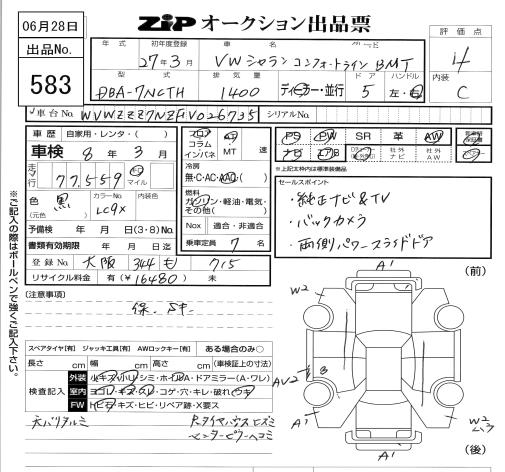 06月28日
ZIP オークション出品票
出品No.
583
年式 初年度登録 車名 グレード
27年3月 VWシャラン コンフォートライン BMT
評価点
4
型式 排気量 ドア ハンドル
DBA-7NCTH 1400 ディーラー・並行 5 左・右
内装
C
車台No. WVWZZZ7NZFV026735 シリアルNo.
車歴 自家用・レンタ・( )
車検 8年3月
走行 77,559 キロ マイル
色 黒 (元色) カラーNo. LC9X 内装色
予備検 年 月 日(3・8)No.
書類有効期限 年 月 日
登録No. 大阪 344 も 715
リサイクル料金 有(¥16480) 未
フロア コラム インパネ AT MT 速
冷房
無・C・AC・AAC( )
燃料
ガソリン・軽油・電気・その他( )
Nox 適合・非適合
乗車定員 7名
PS PW SR 革 AW
ナビ エアB 社外ナビ 社外AW
※上記太枠内は標準装備品
セールスポイント
・純正ナビ&TV
・バックカメラ
・両側パワースライドドア
※ご記入の際はボールペンで強くご記入下さい。
(注意事項)
保、
スペアタイヤ[有] ジャッキ工具[有] AWロックキー[有] ある場合のみ○
長さ cm 幅 cm 高さ cm (車検証上の寸法)
検査記入
外装 小キズ・小U・シミ・ホコA・ドアミラー(A・ワレ)
室内 ヨゴレ・キズ・スレ・ハガレ・コゲ・穴・キレ・破れ・ウキ
FW トビ石・キズ・ヒビ・リペア跡・X要ス
天バリタルミ
Rタイヤハウスヒズミ
センターピラーヘコミ
(前)
A1
W2
AV2
B
A1
A1
W2
ムラ
(後)